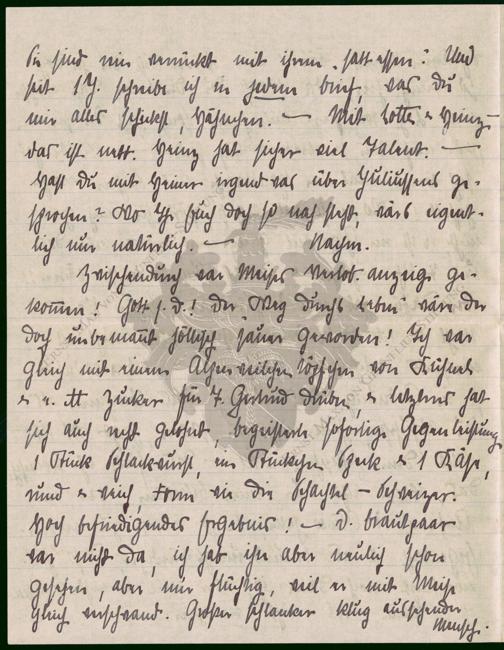 Sie sind rein verrückt mit ihrem "satt essen". Und
seit 1 J. schreibe ich in jedem Brief, was du
mir alles schickst, Hähnchen. — Mit Lotte & Heinz –
das ist nett. Heinz hat sicher viel Talent. —
Hast du mit Heiner irgendwas über Juliussens ge-
sprochen? Wo Ihr Euch doch so nah steht, wärs eigent-
lich nur natürlich. — Nachm.
Zwischendurch war Meises Verlob. anzeige ge-
kommen! Gott s. d.! Der "Weg durchs Leben" wäre der
doch unbemannt höllisch sauer geworden! Ich war
gleich mit einem Alpenveilchen von Kühnel
& 1 ℔ Zucker für T. Gertrud drüben, & letzteres hat
sich auch recht gelohnt, begeisterte sofortige Gegenleistung:
1 Stück Schlackwurst, ein Stückchen Speck & 1 Käse,
rund & weich, Form wie die Schachtel – Schweizer.
Hoch befriedigendes Ergebnis! — D. Brautpaar
war nicht da, ich hab ihn aber neulich schon
gesehen, aber nur flüchtig, weil er mit Meise
gleich verschwand. Großer schlanker klug aussehender
Mensch.